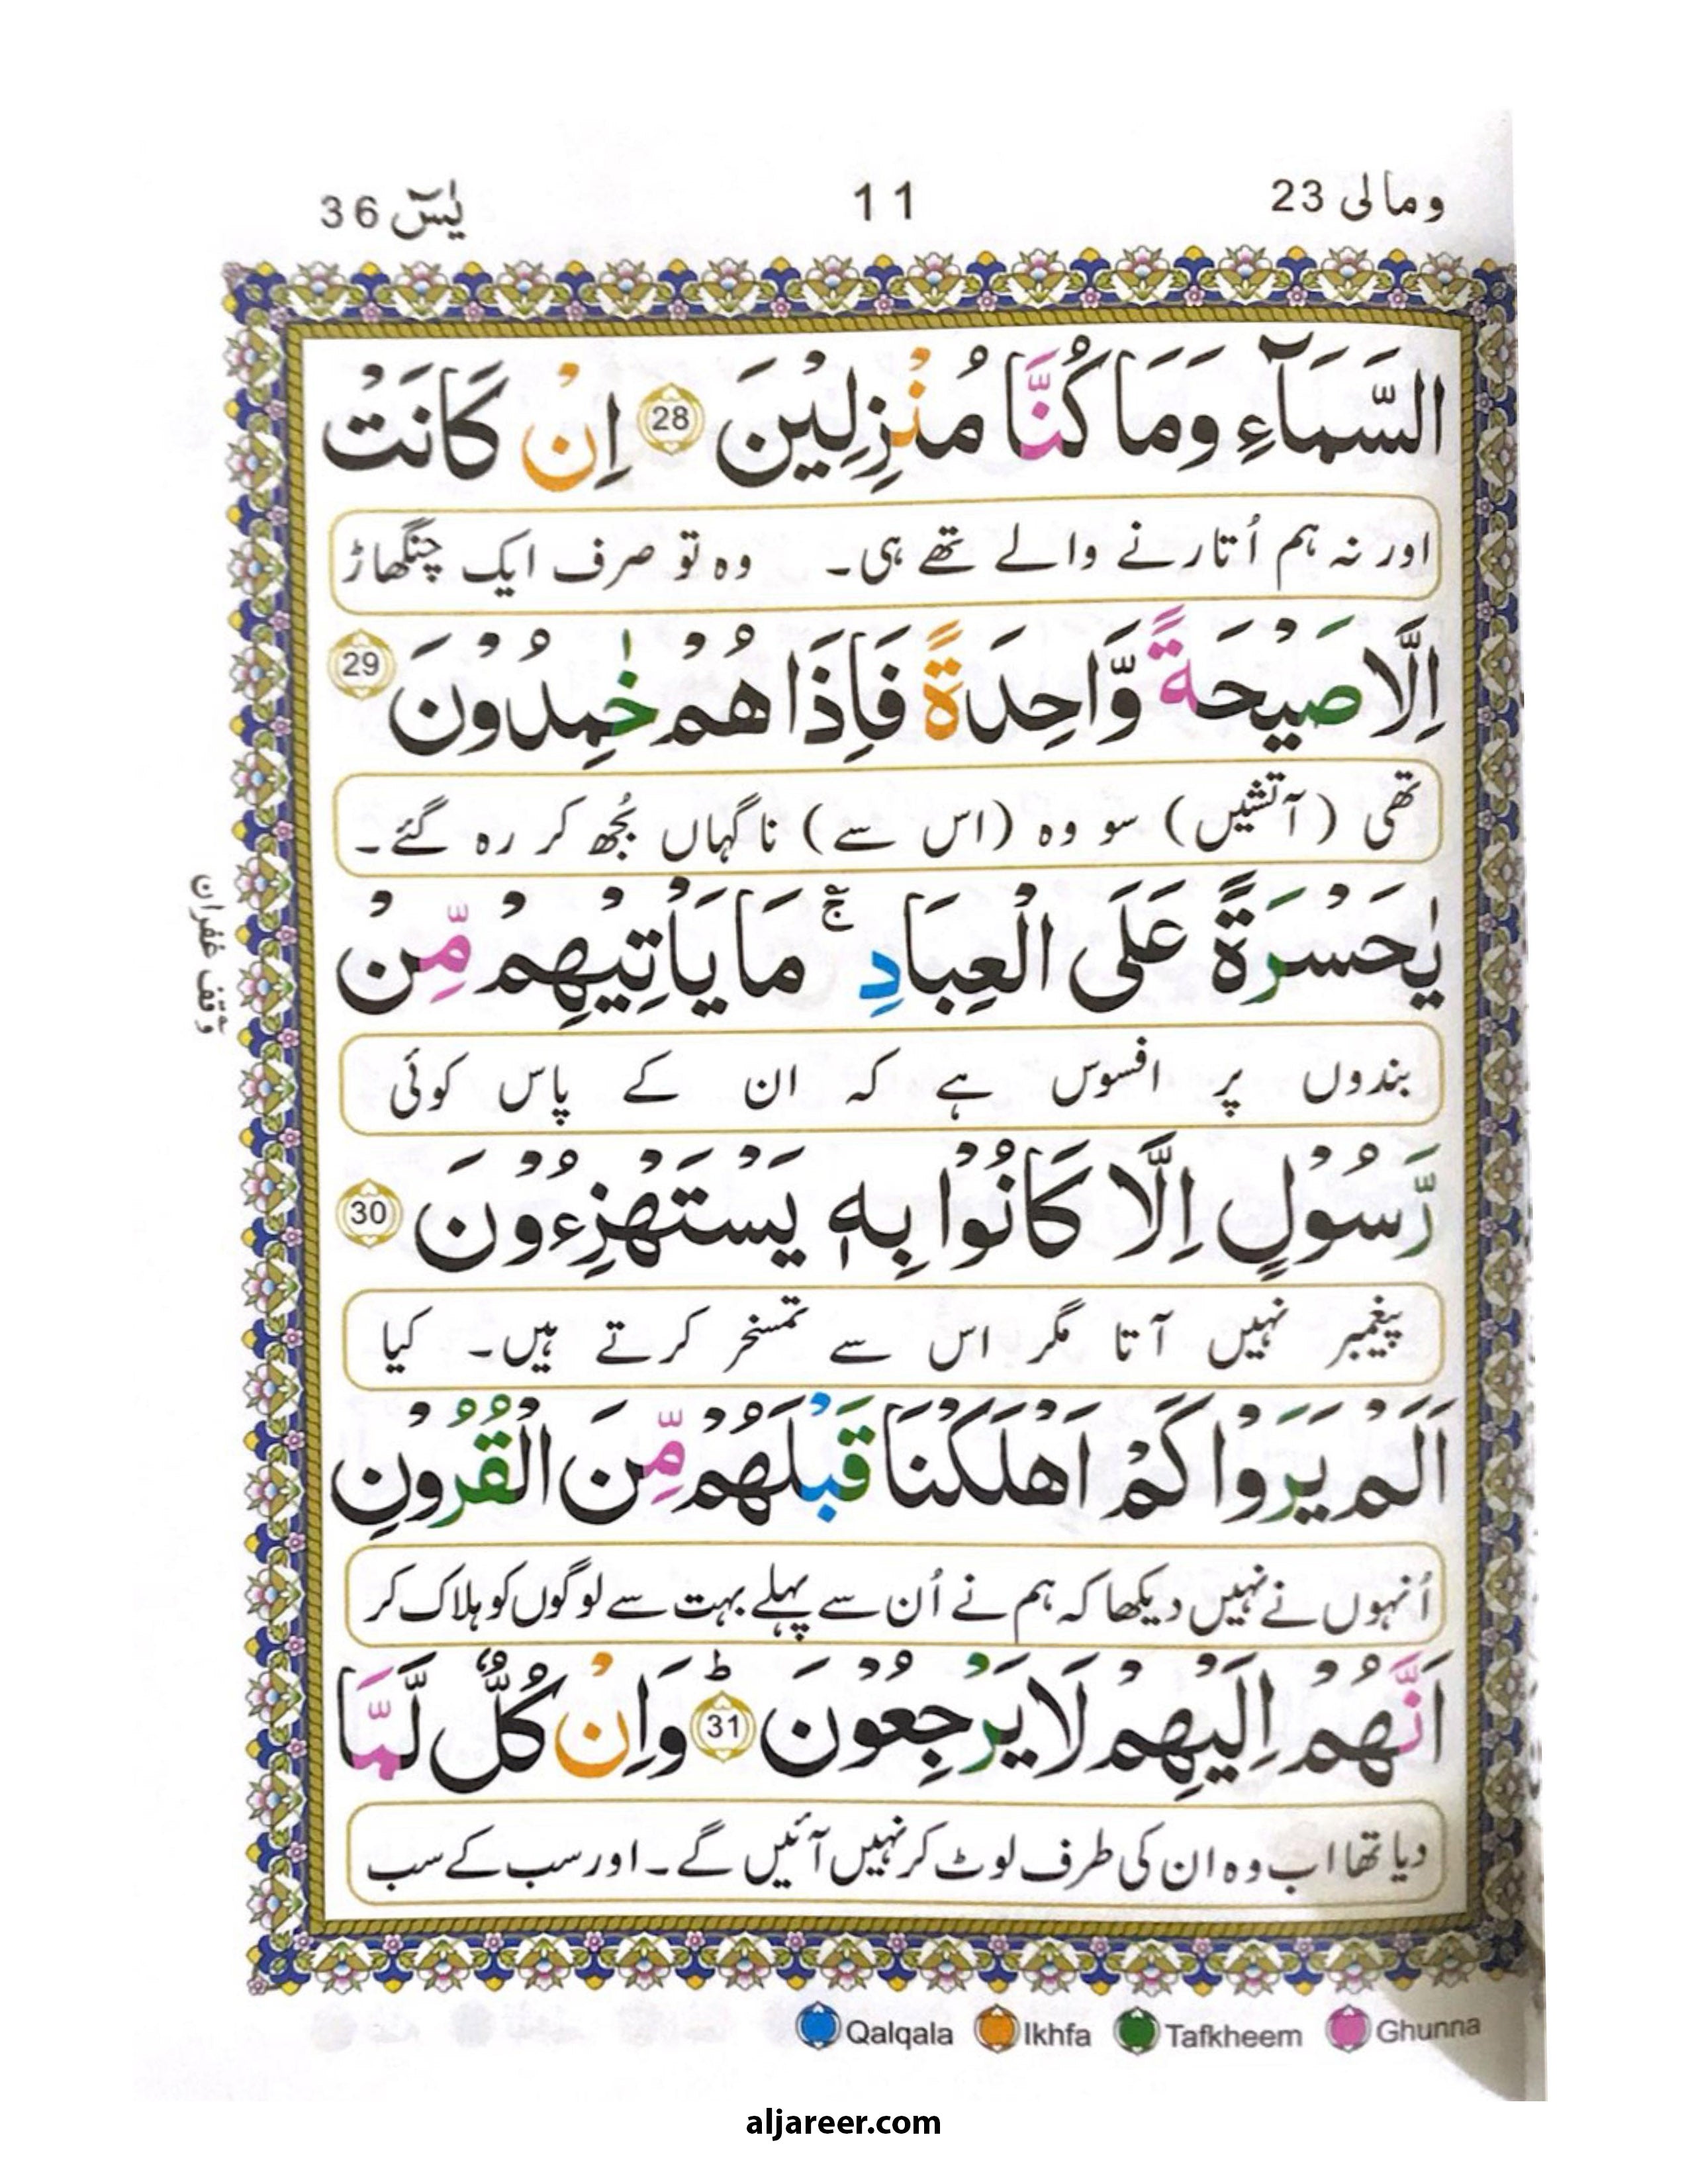 ومالی 23
11
یٰسٓ 36
السَّمَآءِ وَمَا كُنَّا مُنْزِلِيْنَ 28 اِنْ كَانَتْ
اور نہ ہم اُتارنے والے تھے ہی۔ وہ تو صرف ایک چنگھاڑ
اِلَّا صَيْحَةً وَّاحِدَةً فَاِذَا هُمْ خٰمِدُوْنَ 29
تھی (آتشیں) سو وہ (اس سے) ناگہاں بُجھ کر رہ گئے۔
يٰحَسْرَةً عَلَى الْعِبَادِ ۚ مَا يَاْتِيْهِمْ مِّنْ
وقف غفران
بندوں پر افسوس ہے کہ ان کے پاس کوئی
رَّسُوْلٍ اِلَّا كَانُوْا بِهٖ يَسْتَهْزِءُوْنَ 30
پیغمبر نہیں آتا مگر اس سے تمسخر کرتے ہیں۔ کیا
اَلَمْ يَرَوْا كَمْ اَهْلَكْنَا قَبْلَهُمْ مِّنَ الْقُرُوْنِ
اُنہوں نے نہیں دیکھا کہ ہم نے اُن سے پہلے بہت سے لوگوں کو ہلاک کر
اَنَّهُمْ اِلَيْهِمْ لَا يَرْجِعُوْنَ ؕ 31 وَاِنْ كُلٌّ لَّمَّا
دیا تھا اب وہ ان کی طرف لوٹ کر نہیں آئیں گے۔ اور سب کے سب
Qalqala Ikhfa Tafkheem Ghunna
aljareer.com